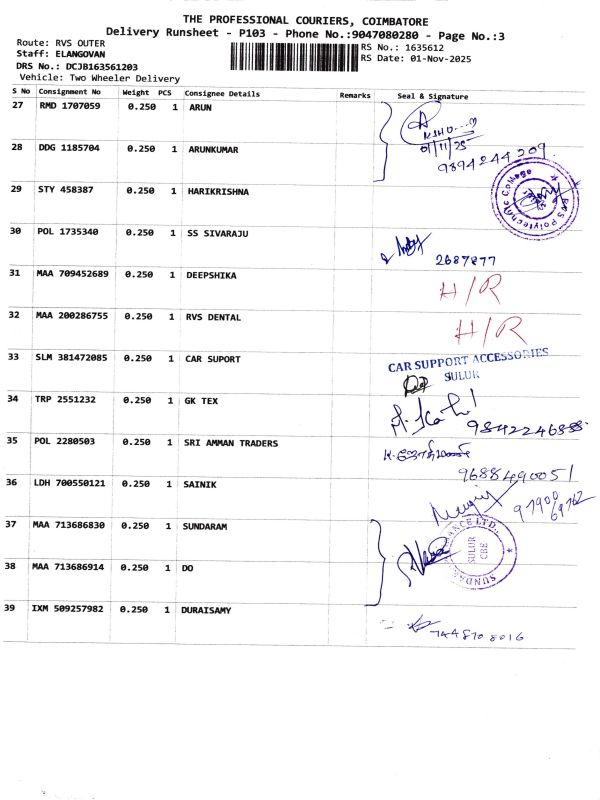 THE PROFESSIONAL COURIERS, COIMBATORE
Delivery Runsheet - P103 - Phone No.:9047080280 - Page No.:3
Route: RVS OUTER
Staff: ELANGOVAN
DRS No.: DCJB163561203
Vehicle: Two Wheeler Delivery
RS No.: 1635612
RS Date: 01-Nov-2025
S No Consignment No Weight PCS Consignee Details Remarks Seal & Signature
27 RMD 1707059 0.250 1 ARUN
01/11/25
28 DDG 1185704 0.250 1 ARUNKUMAR 9894244209
29 STY 458387 0.250 1 HARIKRISHNA
RVS Polytechnic College
30 POL 1735340 0.250 1 SS SIVARAJU 2687877
31 MAA 709452689 0.250 1 DEEPSHIKA H/R
32 MAA 200286755 0.250 1 RVS DENTAL H/R
33 SLM 381472085 0.250 1 CAR SUPORT CAR SUPPORT ACCESSORIES
SULUR
34 TRP 2551232 0.250 1 GK TEX
35 POL 2280503 0.250 1 SRI AMMAN TRADERS
9688490051
36 LDH 700550121 0.250 1 SAINIK 97900
69762
37 MAA 713686830 0.250 1 SUNDARAM
SULUR
CBE
38 MAA 713686914 0.250 1 DO
39 IXM 509257982 0.250 1 DURAISAMY 7448708016